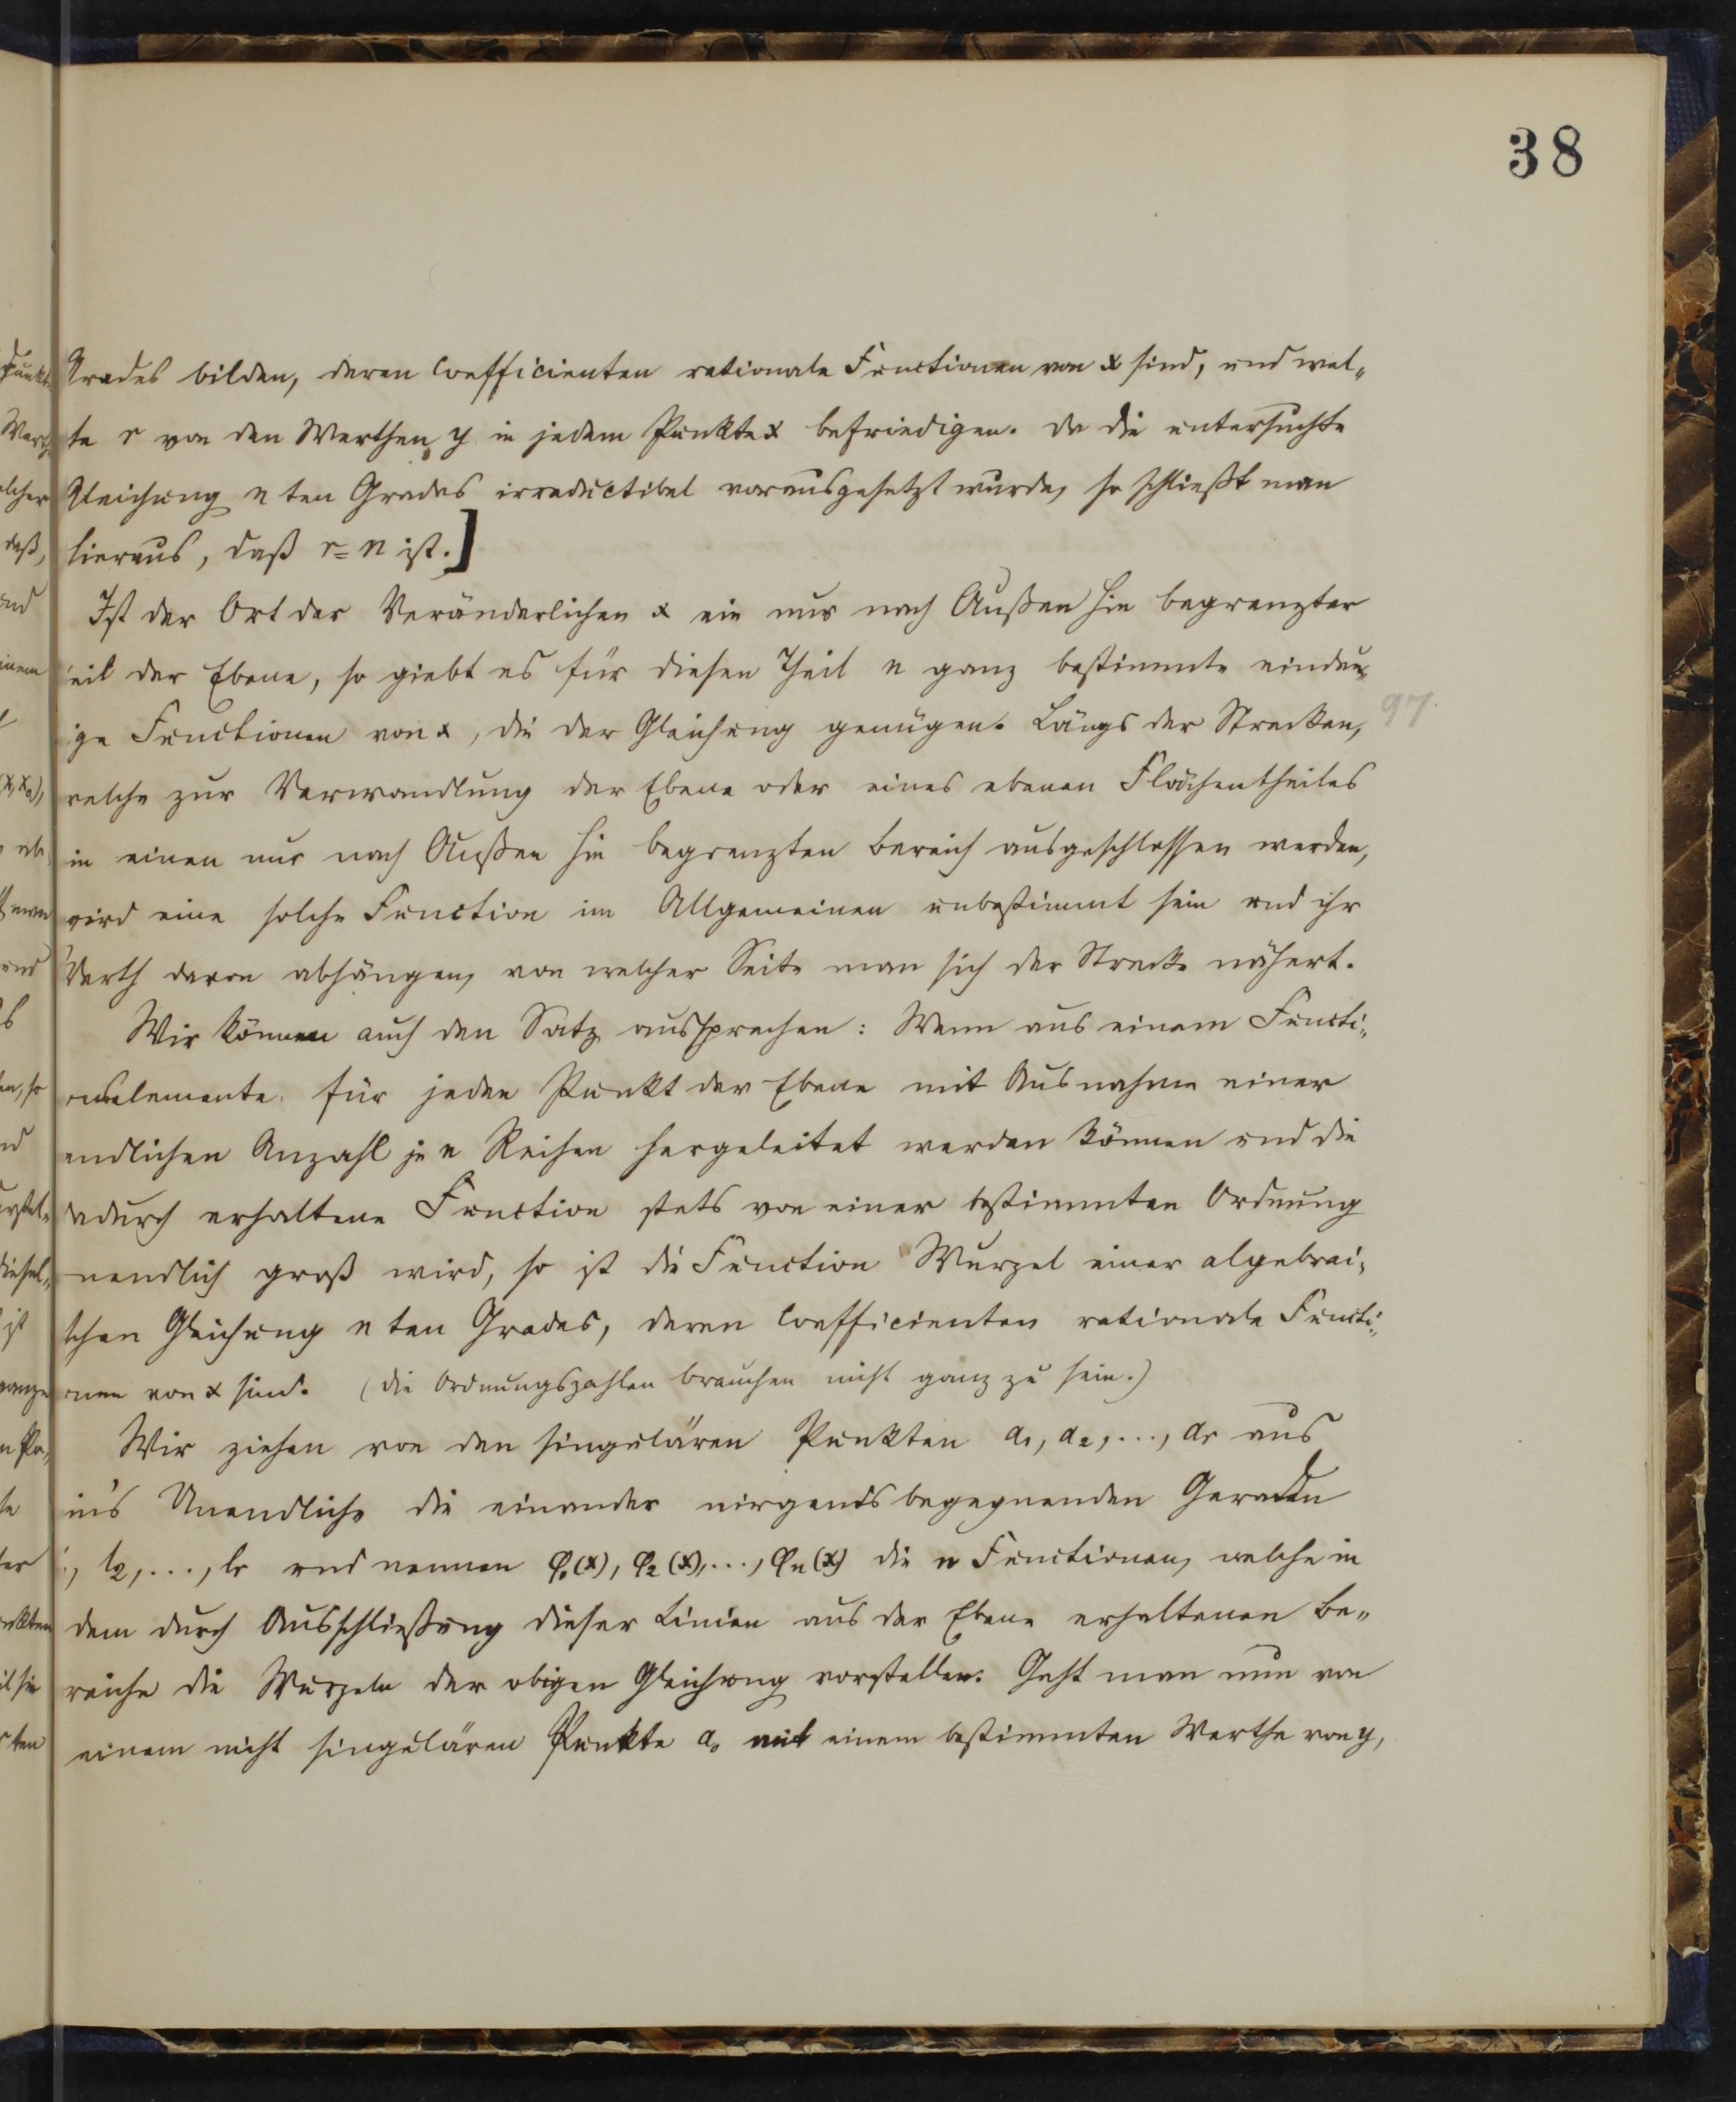 38
Grades bilden, deren Coefficienten rationale Functionen von x sind, und wel-
che r von den Werthen y in jedem Punkte x befriedigen. Da die untersuchte
Gleichung n ten Grades irreductibel vorausgesetzt wurde, so schließt man
hieraus, daß r = n ist.]
Ist der Ort der Veränderlichen x ein nur nach Außen hin begrenzter
eil der Ebene, so giebt es für diesen Theil n ganz bestimmte eindeu-
ige Functionen von x, die der Gleichung genügen. Längs der Strecken,
97.
welche zur Verwandlung der Ebene oder eines ebenen Flächentheiles
in einen nur nach Außen hin begrenzten Bereich ausgeschlossen werden,
wird eine solche Function im Allgemeinen unbestimmt sein und ihr
Werth davon abhängen, von welcher Seite man sich der Strecke nähert.
Wir können auch den Satz aussprechen: Wenn aus einem Functi-
onselemente für jeden Punkt der Ebene mit Ausnahme einer
endlichen Anzahl je n Reihen hergeleitet werden können und die
dadurch erhaltene Function stets von einer bestimmten Ordnung
nendlich groß wird, so ist die Function Wurzel einer algebrai-
schen Gleichung n ten Grades, deren Coefficienten rationale Functi-
onen von x sind. (Die Ordnungszahlen brauchen nicht ganz zu sein.)
Wir ziehen von den singulären Punkten a₁, a₂, ..., aᵣ aus
in's Unendliche die einander nirgends begegnenden Geraden
, l₂, ..., lᵣ und nennen φ₁(x), φ₂(x), ..., φₙ(x) die n Functionen, welche in
dem durch Ausschließung dieser Linien aus der Ebene erhaltenen Be-
reiche die Wurzeln der obigen Gleichung vorstellen. Geht man nun von
einem nicht singulären Punkte a₀ mit einem bestimmten Werthe von y,